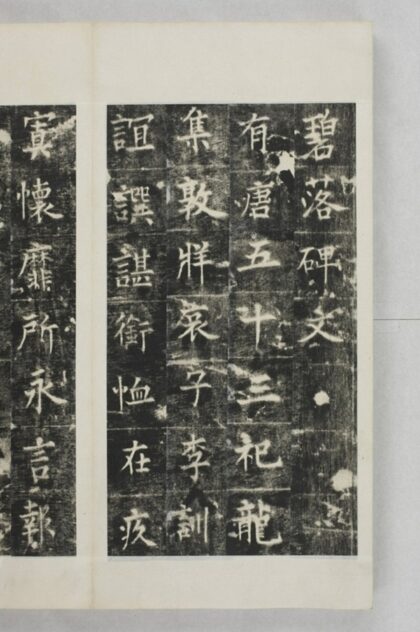 碧落碑文
有唐五十三祀龍
集敦牂哀子李訓
誼譔諶銜恤在疚
寘懷靡所永言報